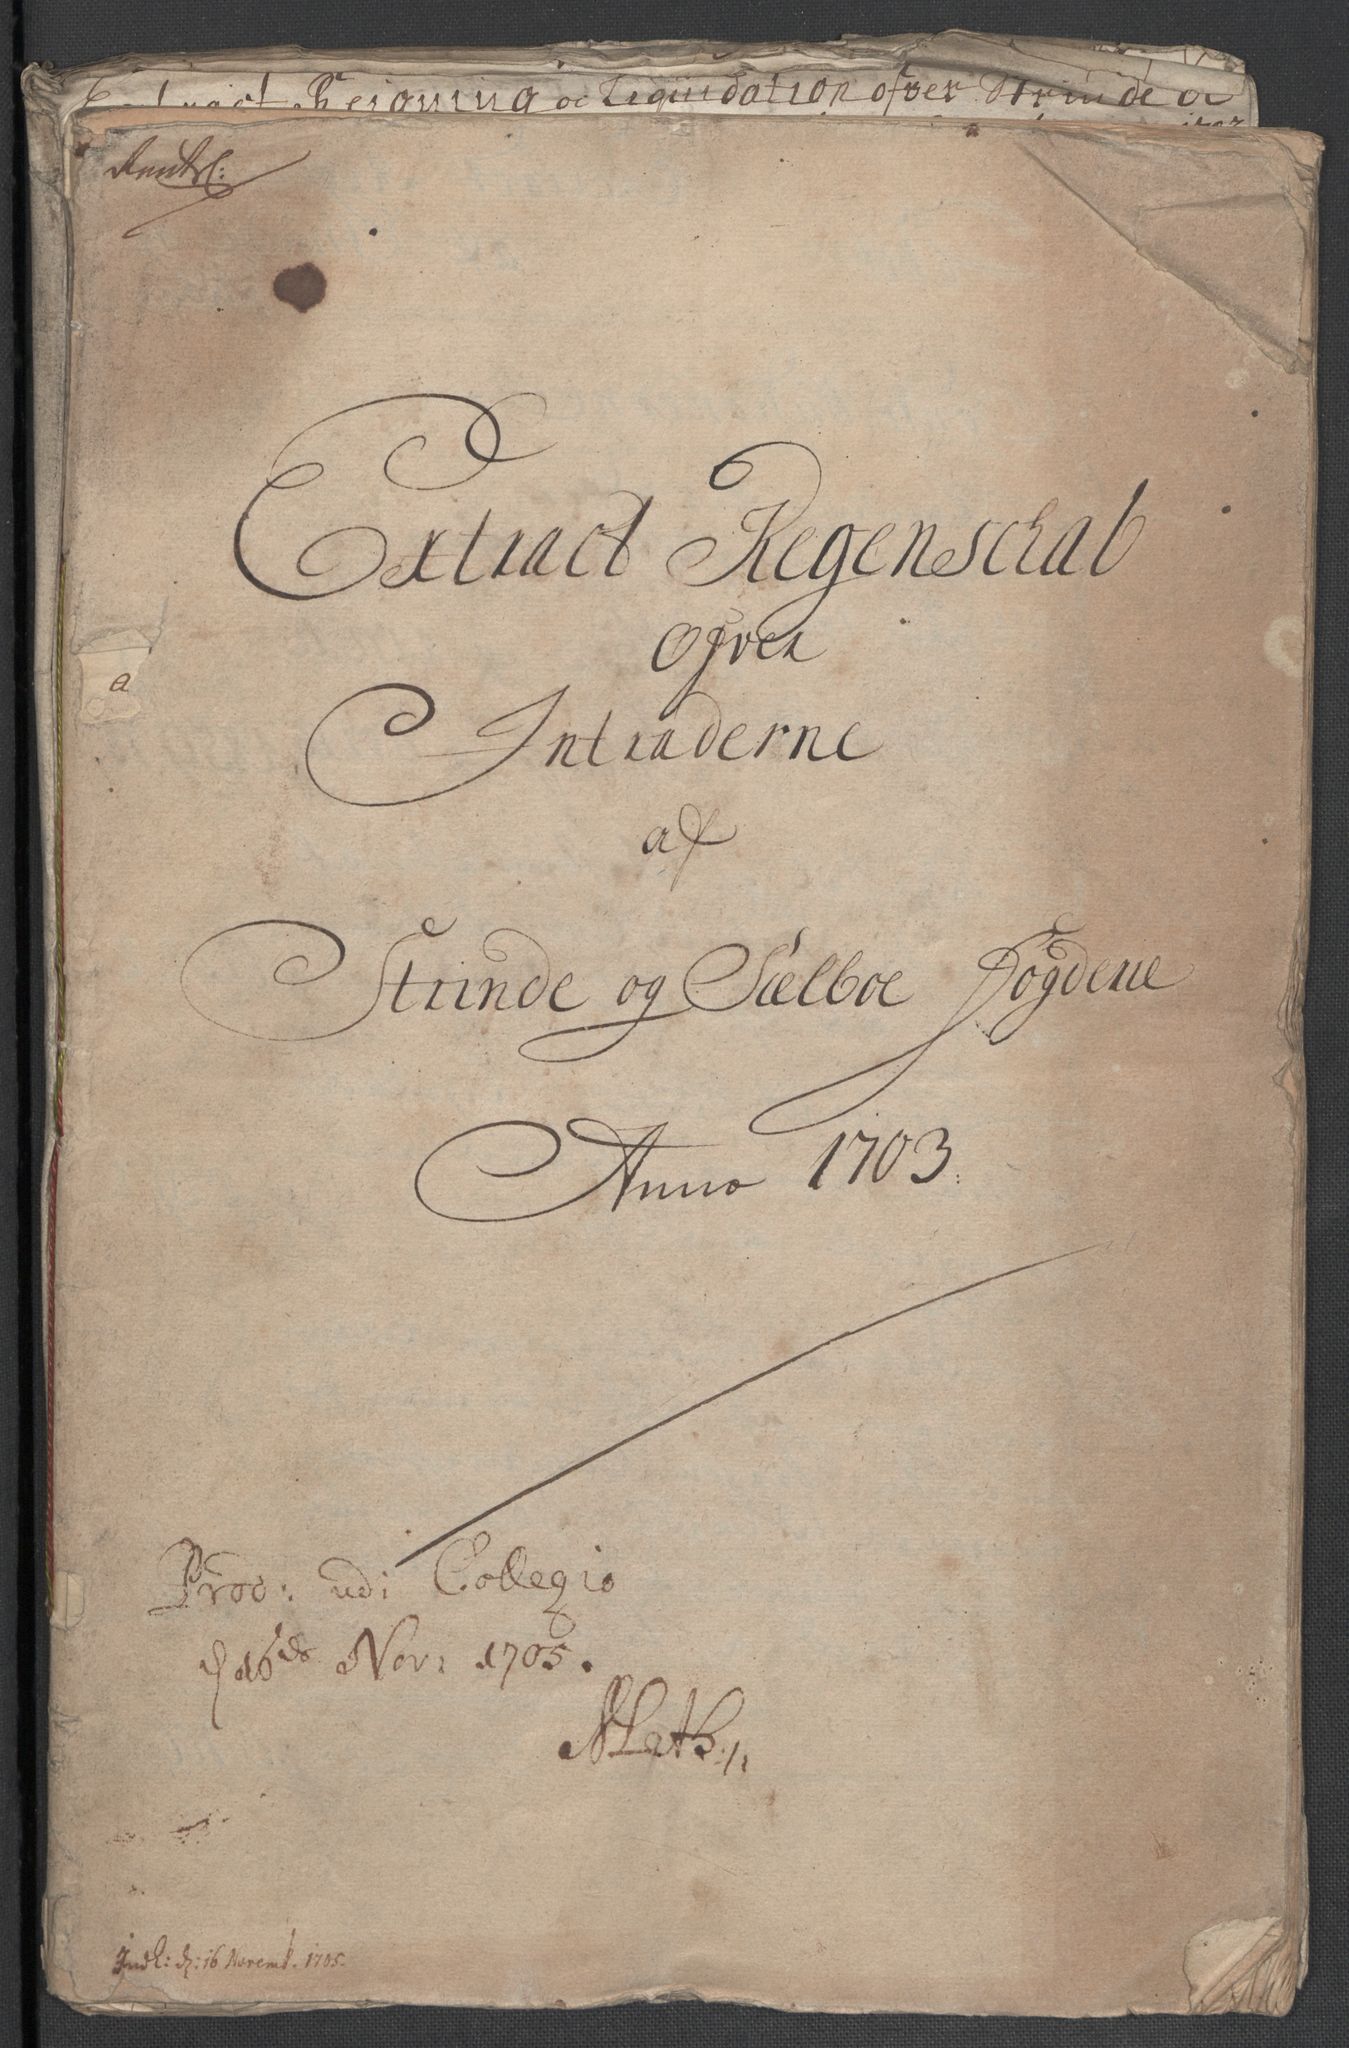 Extract Reigning oc Liqvidation ofver Strinde oc
1703
Rentk:
Extract Regenschab
Ofver
Intraderne
a
af
Strinde og Sælboe Fogderie
Anno 1703.
Prod: udi Collegio
d 16de Nov: 1705.
Indl: d: 16 Novemb. 1705.